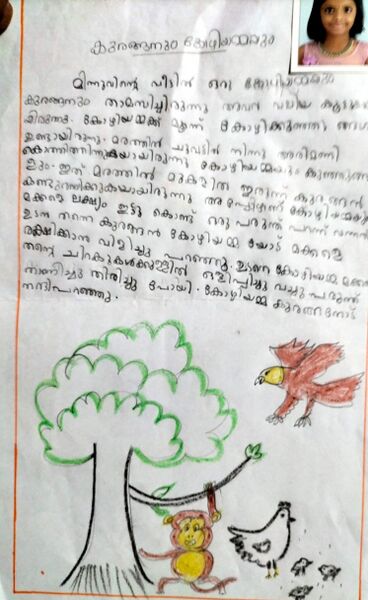 കുരങ്ങനും കോഴിയമ്മയും
മിന്നുവിന്റെ വീട്ടിൽ ഒരു കോഴിയമ്മയും
കുരങ്ങനും താമസിച്ചിരുന്നു അവർ വലിയ കൂട്ടുകാ
രായിരുന്നു. കോഴിയമ്മക്ക് മൂന്ന് കോഴിക്കുഞ്ഞുങ്ങൾ
ഉണ്ടായിരുന്നു. മരത്തിൻ ചുവട്ടിൽ നിന്നു അരിമണി
കൊത്തിത്തിന്നുകയായിരുന്നു കോഴിയമ്മയും കുഞ്ഞുങ്ങ
ളും. ഇത് മരത്തിൻ മുകളിൽ ഇരുന്ന് കുരങ്ങൻ
കണ്ടുരസിക്കുകയായിരുന്നു അപ്പോഴാണ് കോഴിയമ്മയുടെ
മക്കളെ ലക്ഷ്യം ഇട്ടു കൊണ്ട് ഒരു പരുന്ത് പറന്ന് വന്നത്
ഉടൻ തന്നെ കുരങ്ങൻ കോഴിയമ്മ യോട് മക്കളെ
രക്ഷിക്കാൻ വിളിച്ചു പറഞ്ഞു. ഉടനെ കോഴിയമ്മ മക്കളെ
തന്റെ ചിറകുകൾക്കുള്ളിൽ ഒളിപ്പിച്ചു വച്ചു പരുന്ത്
നാണിച്ചു തിരിച്ചു പോയി. കോഴിയമ്മ കുരങ്ങനോട്
നന്ദിപറഞ്ഞു.